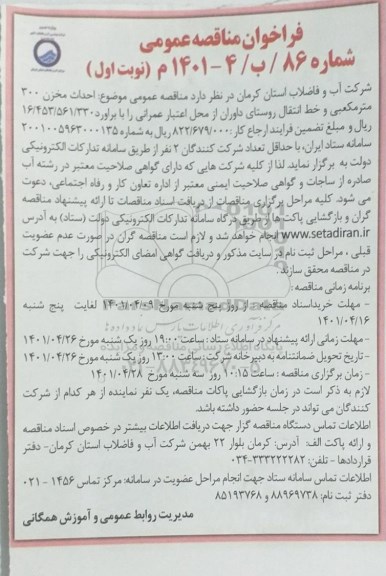 فراخوان مناقصه عمومی
شماره ۸۶ / ب / ۴ - ۱۴۰۱ م (نوبت اول)
شرکت آب و فاضلاب استان کرمان در نظر دارد مناقصه عمومی موضوع: احداث مخزن ۳۰۰
مترمکعبی و خط انتقال روستای داوران از محل اعتبار عمرانی را با براورد ۱۶/۴۵۳/۵۶۱/۳۳۰
ریال و مبلغ تضمین فرایند ارجاع کار: ۸۲۲/۶۷۹/۰۰۰ ریال به شماره ۲۰۰۱۰۰۵۹۶۳۰۰۰۱۳۵
سامانه ستاد ایران، با حداقل تعداد شرکت کنندگان ۲ نفر از طریق سامانه تدارکات الکترونیکی
دولت به برگزار نماید. لذا از کلیه شرکت هایی که دارای گواهی صلاحیت معتبر در رشته آب
صادره از ساجات و گواهی صلاحیت ایمنی معتبر از اداره تعاون کار و رفاه اجتماعی، دعوت
می شود. کلیه مراحل برگزاری مناقصات از دریافت اسناد مناقصات تا ارائه پیشنهاد مناقصه
گران و بازگشایی پاکت ها از طریق درگاه سامانه تدارکات الکترونیکی دولت (ستاد) به آدرس
www.setadiran.ir انجام خواهد شد و لازم است مناقصه گران در صورت عدم عضویت
قبلی، مراحل ثبت نام در سایت مذکور و دریافت گواهی امضای الکترونیکی را جهت شرکت
در مناقصه محقق سازند.
برنامه زمانی مناقصه :
- مهلت خرید اسناد مناقصه : از روز پنج شنبه مورخ ۱۴۰۱/۰۴/۰۹ لغایت پنج شنبه
۱۴۰۱/۰۴/۱۶
- مهلت زمانی ارائه پیشنهاد در سامانه ستاد : ساعت ۱۹:۰۰ روز یک شنبه مورخ ۱۴۰۱/۰۴/۲۶
- تاریخ تحویل ضمانتنامه به دبیرخانه شرکت : ساعت ۱۳:۰۰ روز یک شنبه مورخ ۱۴۰۱/۰۴/۲۶
- زمان برگزاری مناقصه : ساعت ۱۰:۱۵ روز سه شنبه مورخ ۱۴۰۱/۰۴/۲۸
لازم به ذکر است در زمان بازگشایی پاکات مناقصه، یک نفر نماینده از هر کدام از شرکت
کنندگان می تواند در جلسه حضور داشته باشد.
اطلاعات تماس دستگاه مناقصه گزار جهت دریافت اطلاعات بیشتر در خصوص اسناد مناقصه
و ارائه پاکت الف: آدرس: کرمان بلوار ۲۲ بهمن شرکت آب و فاضلاب استان کرمان- دفتر
قراردادها - تلفن: ۳۳۳۲۲۲۲۸۲-۰۳۴
اطلاعات تماس سامانه ستاد جهت انجام مراحل عضویت در سامانه: مرکز تماس ۱۴۵۶ - ۰۲۱
دفتر ثبت نام: ۸۸۹۶۹۷۳۸ و ۸۵۱۹۳۷۶۸
مدیریت روابط عمومی و آموزش همگانی